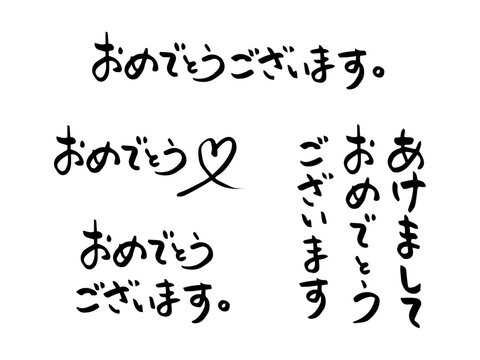 おめでとうございます。
おめでとう♡
おめでとう
ございます。
あけまして
おめでとう
ございます